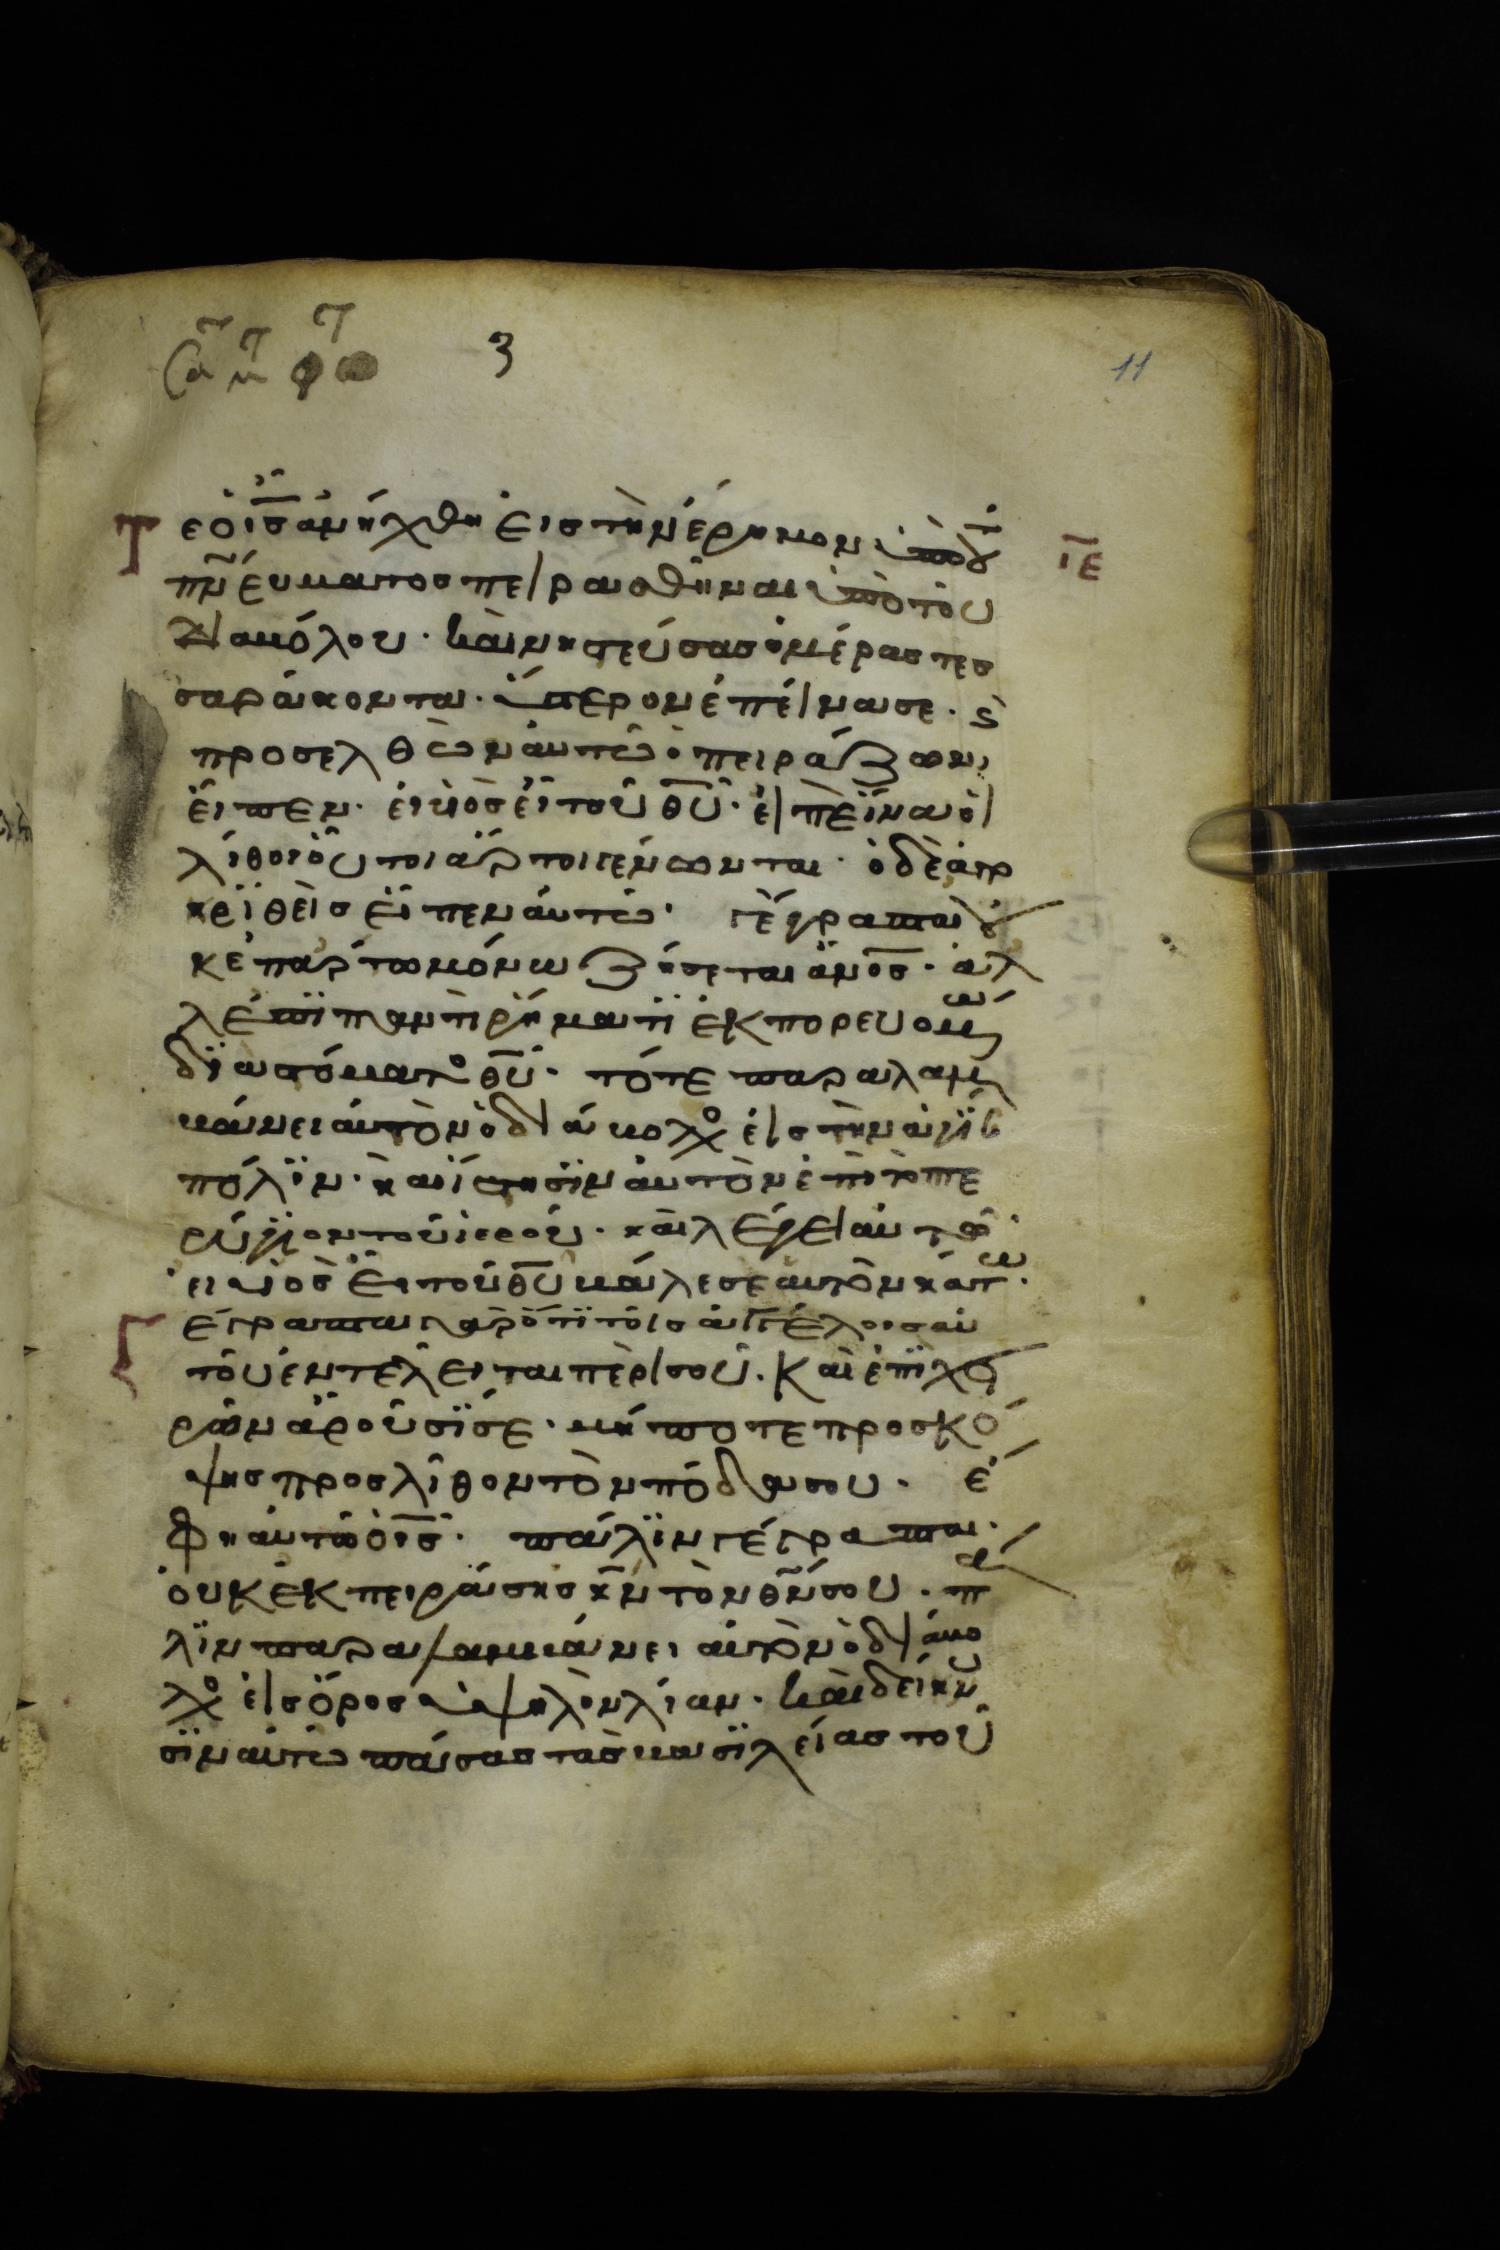 3
11
Τε ὁ ἰς̅ ἀνήχθη εἰς τὴν ἔρημον ὑπὸ τοῦ
ιε̅
πν̅εύματος πειρασθῆναι ὑπὸ τοῦ
διαβόλου · καὶ νηστεύσας ἡμέρας τεσ
σαράκοντα · ὕστερον ἐπείνασε · ϛ̀
προσελθὼν ἀυτῶ ὁ πειράζων,
εἶπεν · εἰ υἱὸς εἶ τοῦ θυ̅ · εἰπὲ ἵνα ὁι
λίθοι οὗτοι ἄρτοι γένωνται · ὁ δὲ ἀπο
κριθεὶς εἶπεν ἀυτῶ · γέγραπται ὀυ
κ ἐπ ἄρτω μόνω ζήσεται ἄνος̅ · ἀλ
λ ἐπὶ παντὶ ρήματι ἐκπορευομένω
διὰ στόματος θυ̅ · τότε παραλαμ
βάνει ἀυτὸν ὁ διάβολος εἰς τὴν ἁγίαν
πόλιν · καὶ ἵστησιν ἀυτὸν ἐπὶ τὸ πτε
ρύγιον τοῦ ἱεροῦ · καὶ λέγει ἀυτῶ ·
εἰ υἱὸς εἶ τοῦ θυ̅ βάλε σεἀυτὸν κάτω ·
Γέγραπται γὰρ ὅτι τοῖς ἀγγέλοις ἀυ
τοῦ ἐντελεῖται περὶ σοῦ. καὶ ἐπὶ χει
ρῶν ἀροῦσί σε · μήποτε προσκό
ψης προς λίθον τὸν πόδα σου · ἔ
φη ἀυτῶ ὁ ις̅ · πάλιν γέγραπται ·
ὀυκ ἐκπειράσης κν̅ τὸν θν̅ σου · πά
λιν παραλαμβάνει ἀυτὸν ὁ διάβο
λος εἰς ὄρος ὑψηλὸν λίαν · καὶ δείκνυ
σιν ἀυτῶ πάσας τὰς βασιλείας τοῦ